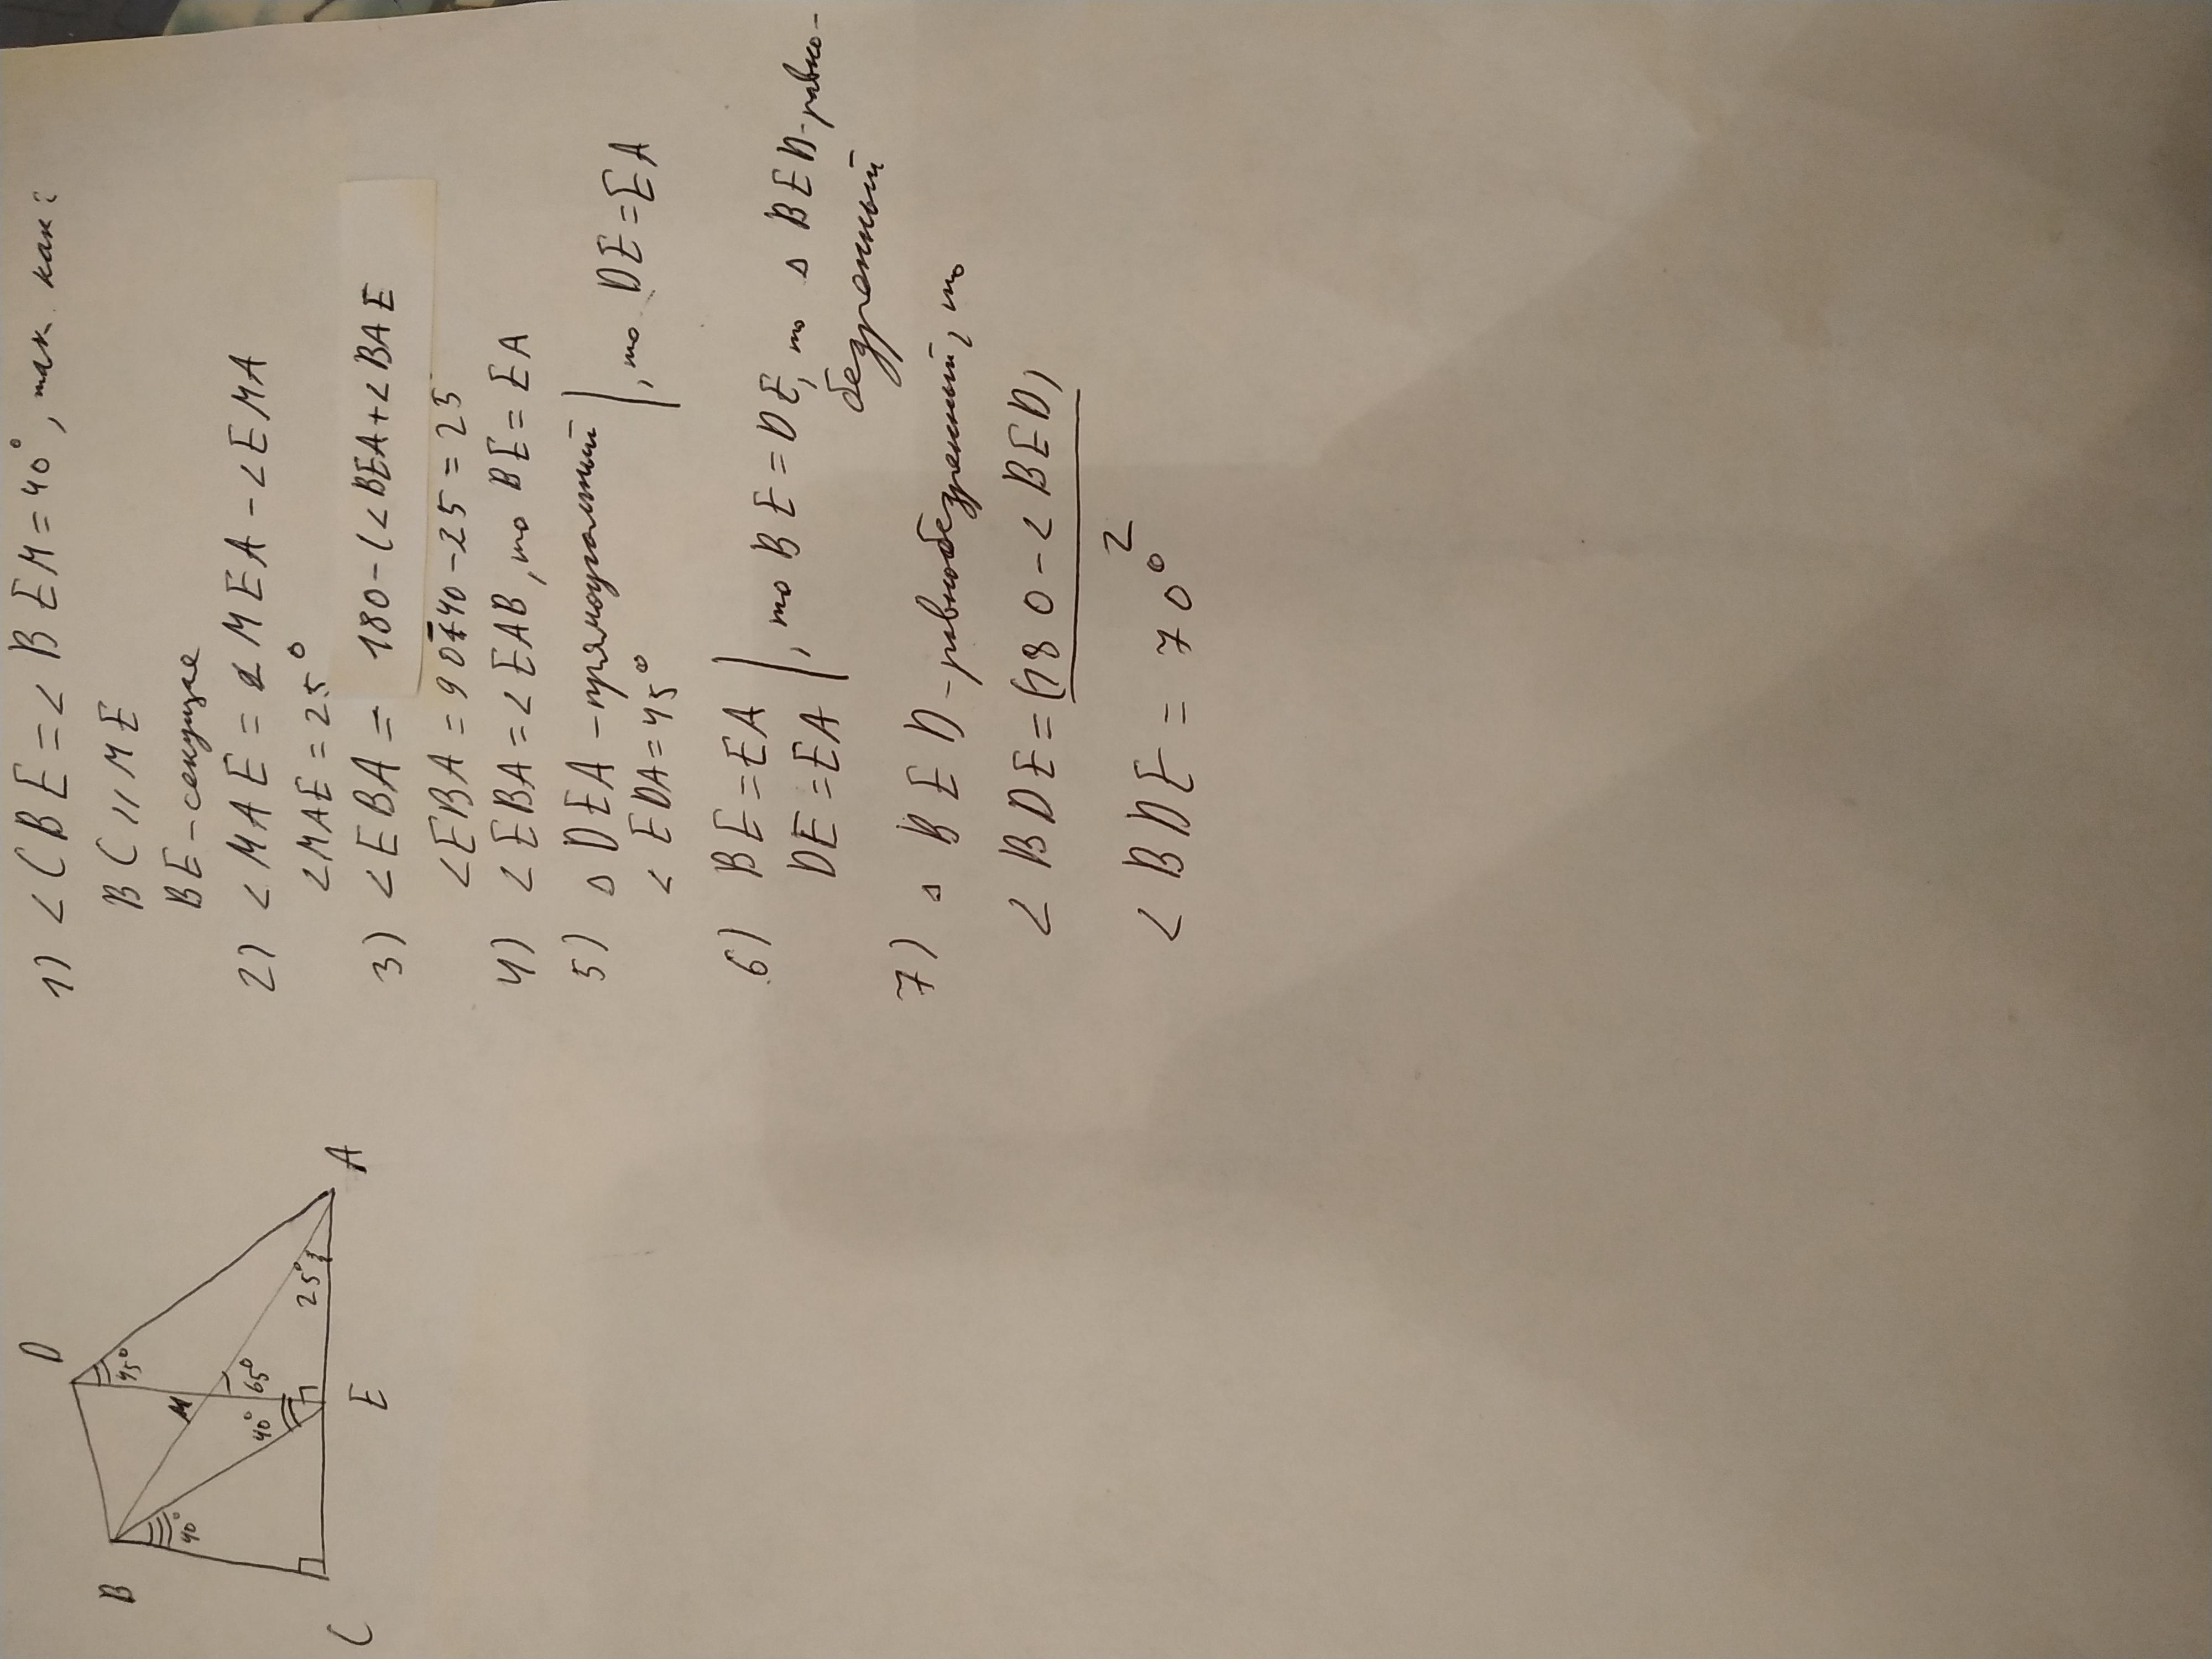 1) <CBE = <BEM = 40°, так как:
BC || ME
BE - секущая
2) <MAE = <MEA - <EMA
<MAE = 25°
3) <EBA = 180 - (<BEA + <BAE
<EBA = 90 - 40 - 25 = 25
4) <EBA = <EAB, то BE = EA
5) △ DEA - прямоугольный
<EDA = 45° , то DE = EA
6) BE = EA
DE = EA , то BE = DE, то △ BED - равно-
бедренный
7) △ BED - равнобедренный, то
<BDE = (180 - <BED)
2
<BDE = 70°
B
D
M
45°
65°
40°
40°
25°
C
E
A